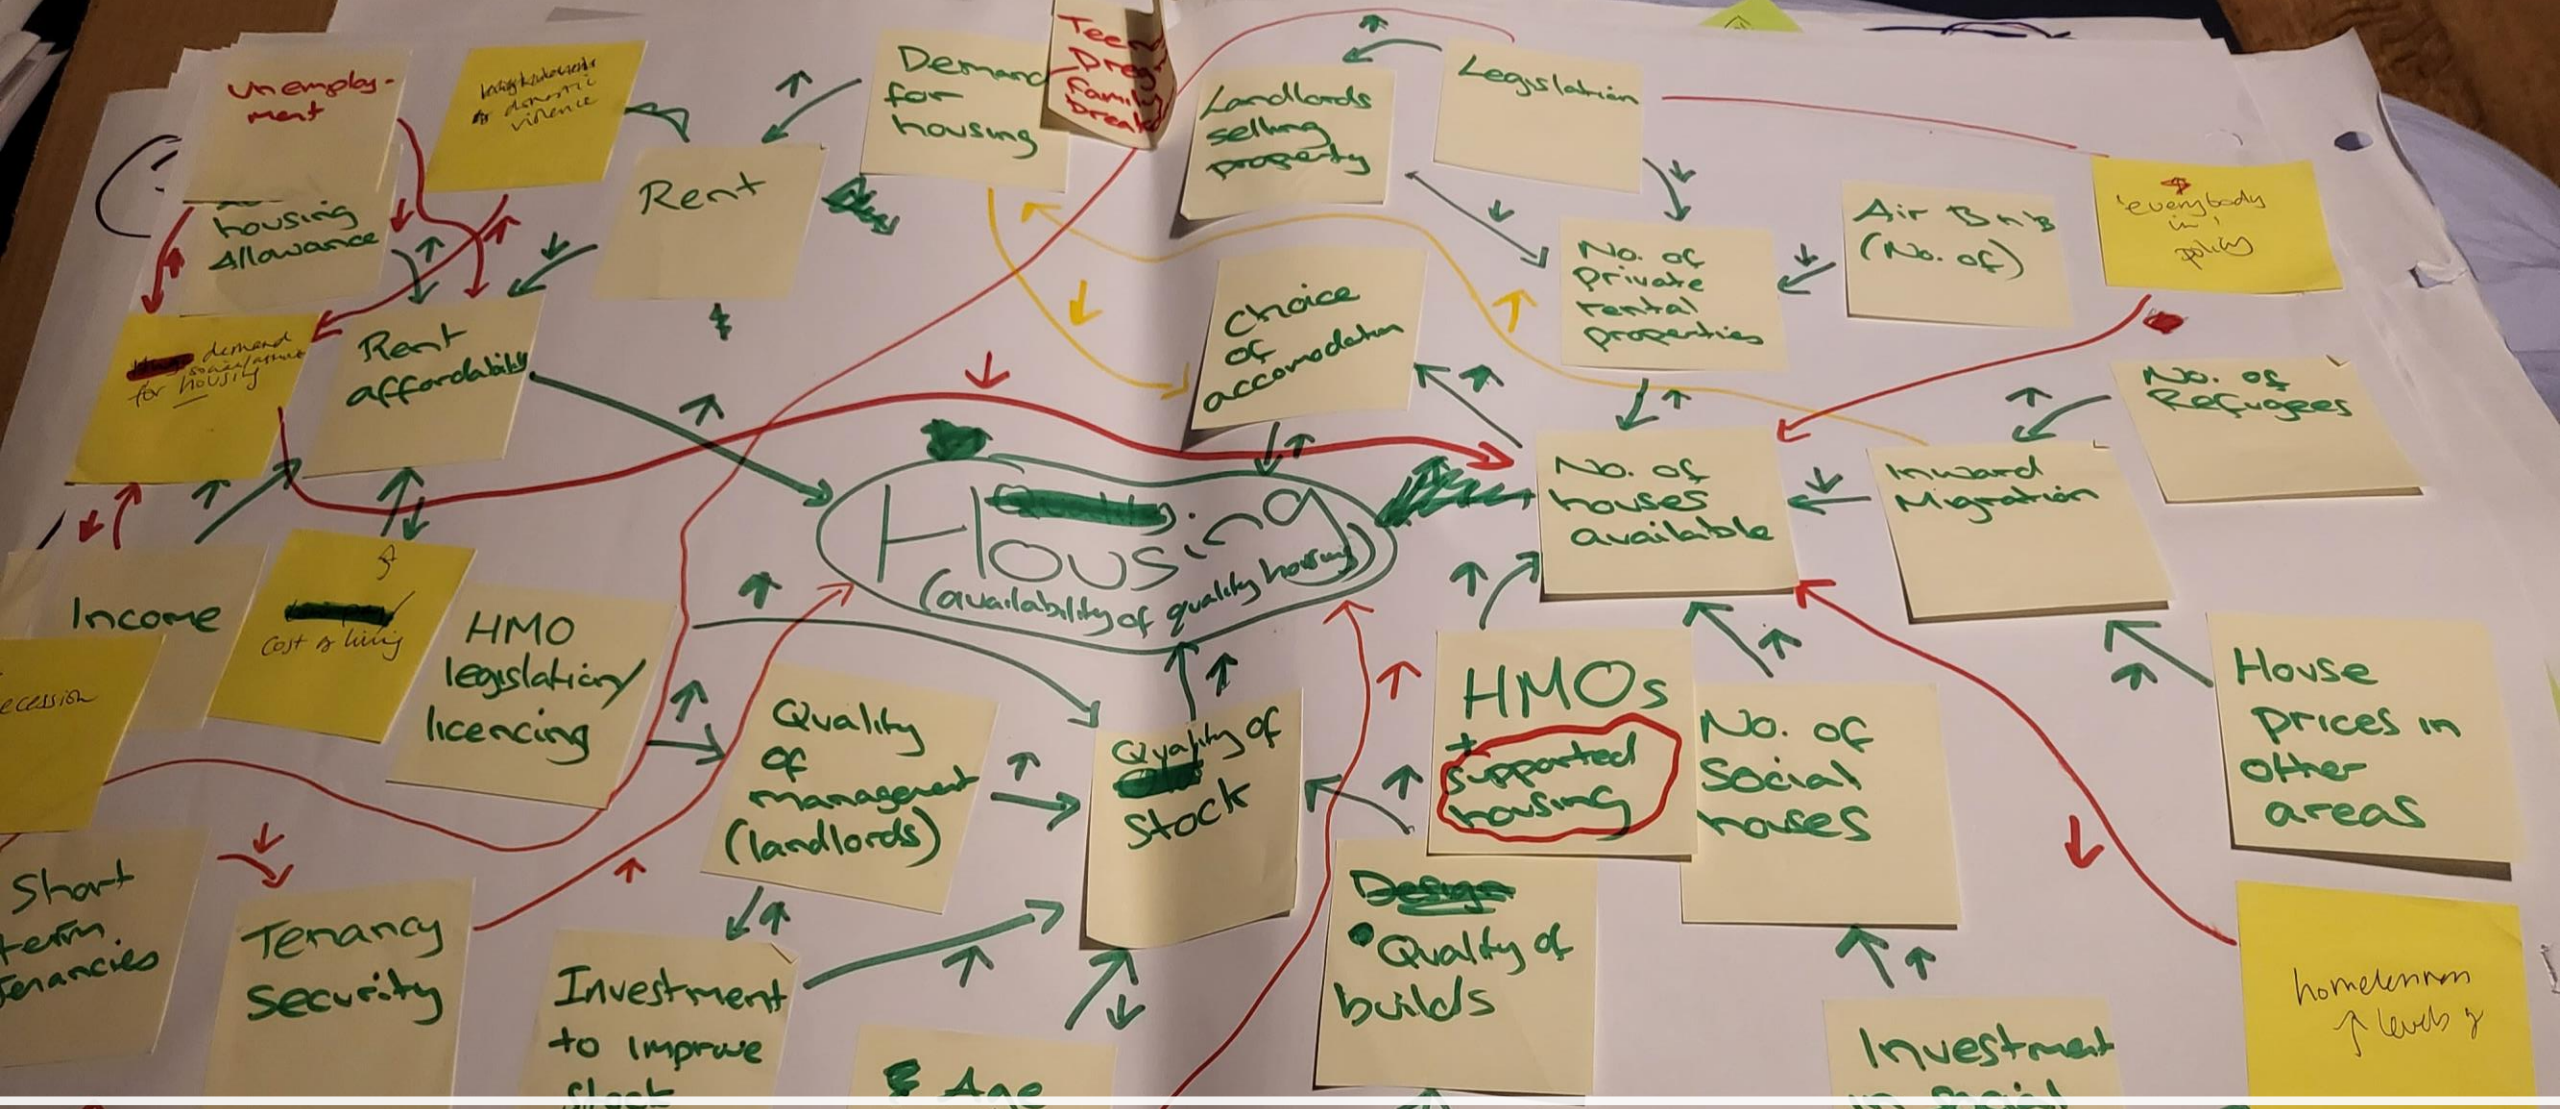 Unemploy-
ment
domestic
violence
Demand
for
housing
Teen
Preg
Family
break
Landlords
selling
property
Legislation
housing
Allowance
Rent
No. of
private
rental
properties
Air BnB
(No. of)
'everybody
in'
policy
demand
for housing
Rent
affordability
Choice
of
accomodation
No. of
Refugees
No. of
houses
available
Inward
Migration
Housing
(availability of quality housing)
Income
Cost of living
ecession
HMO
legislation/
licencing
Quality
of
management
(landlords)
Quality of
Stock
HMOs
+
supported
housing
No. of
Social
houses
House
prices in
other
areas
Short
term
Tenancies
Tenancy
Security
Investment
to improve
Stock
Age
Design
Quality of
builds
Investment
in social
homelessness
levels